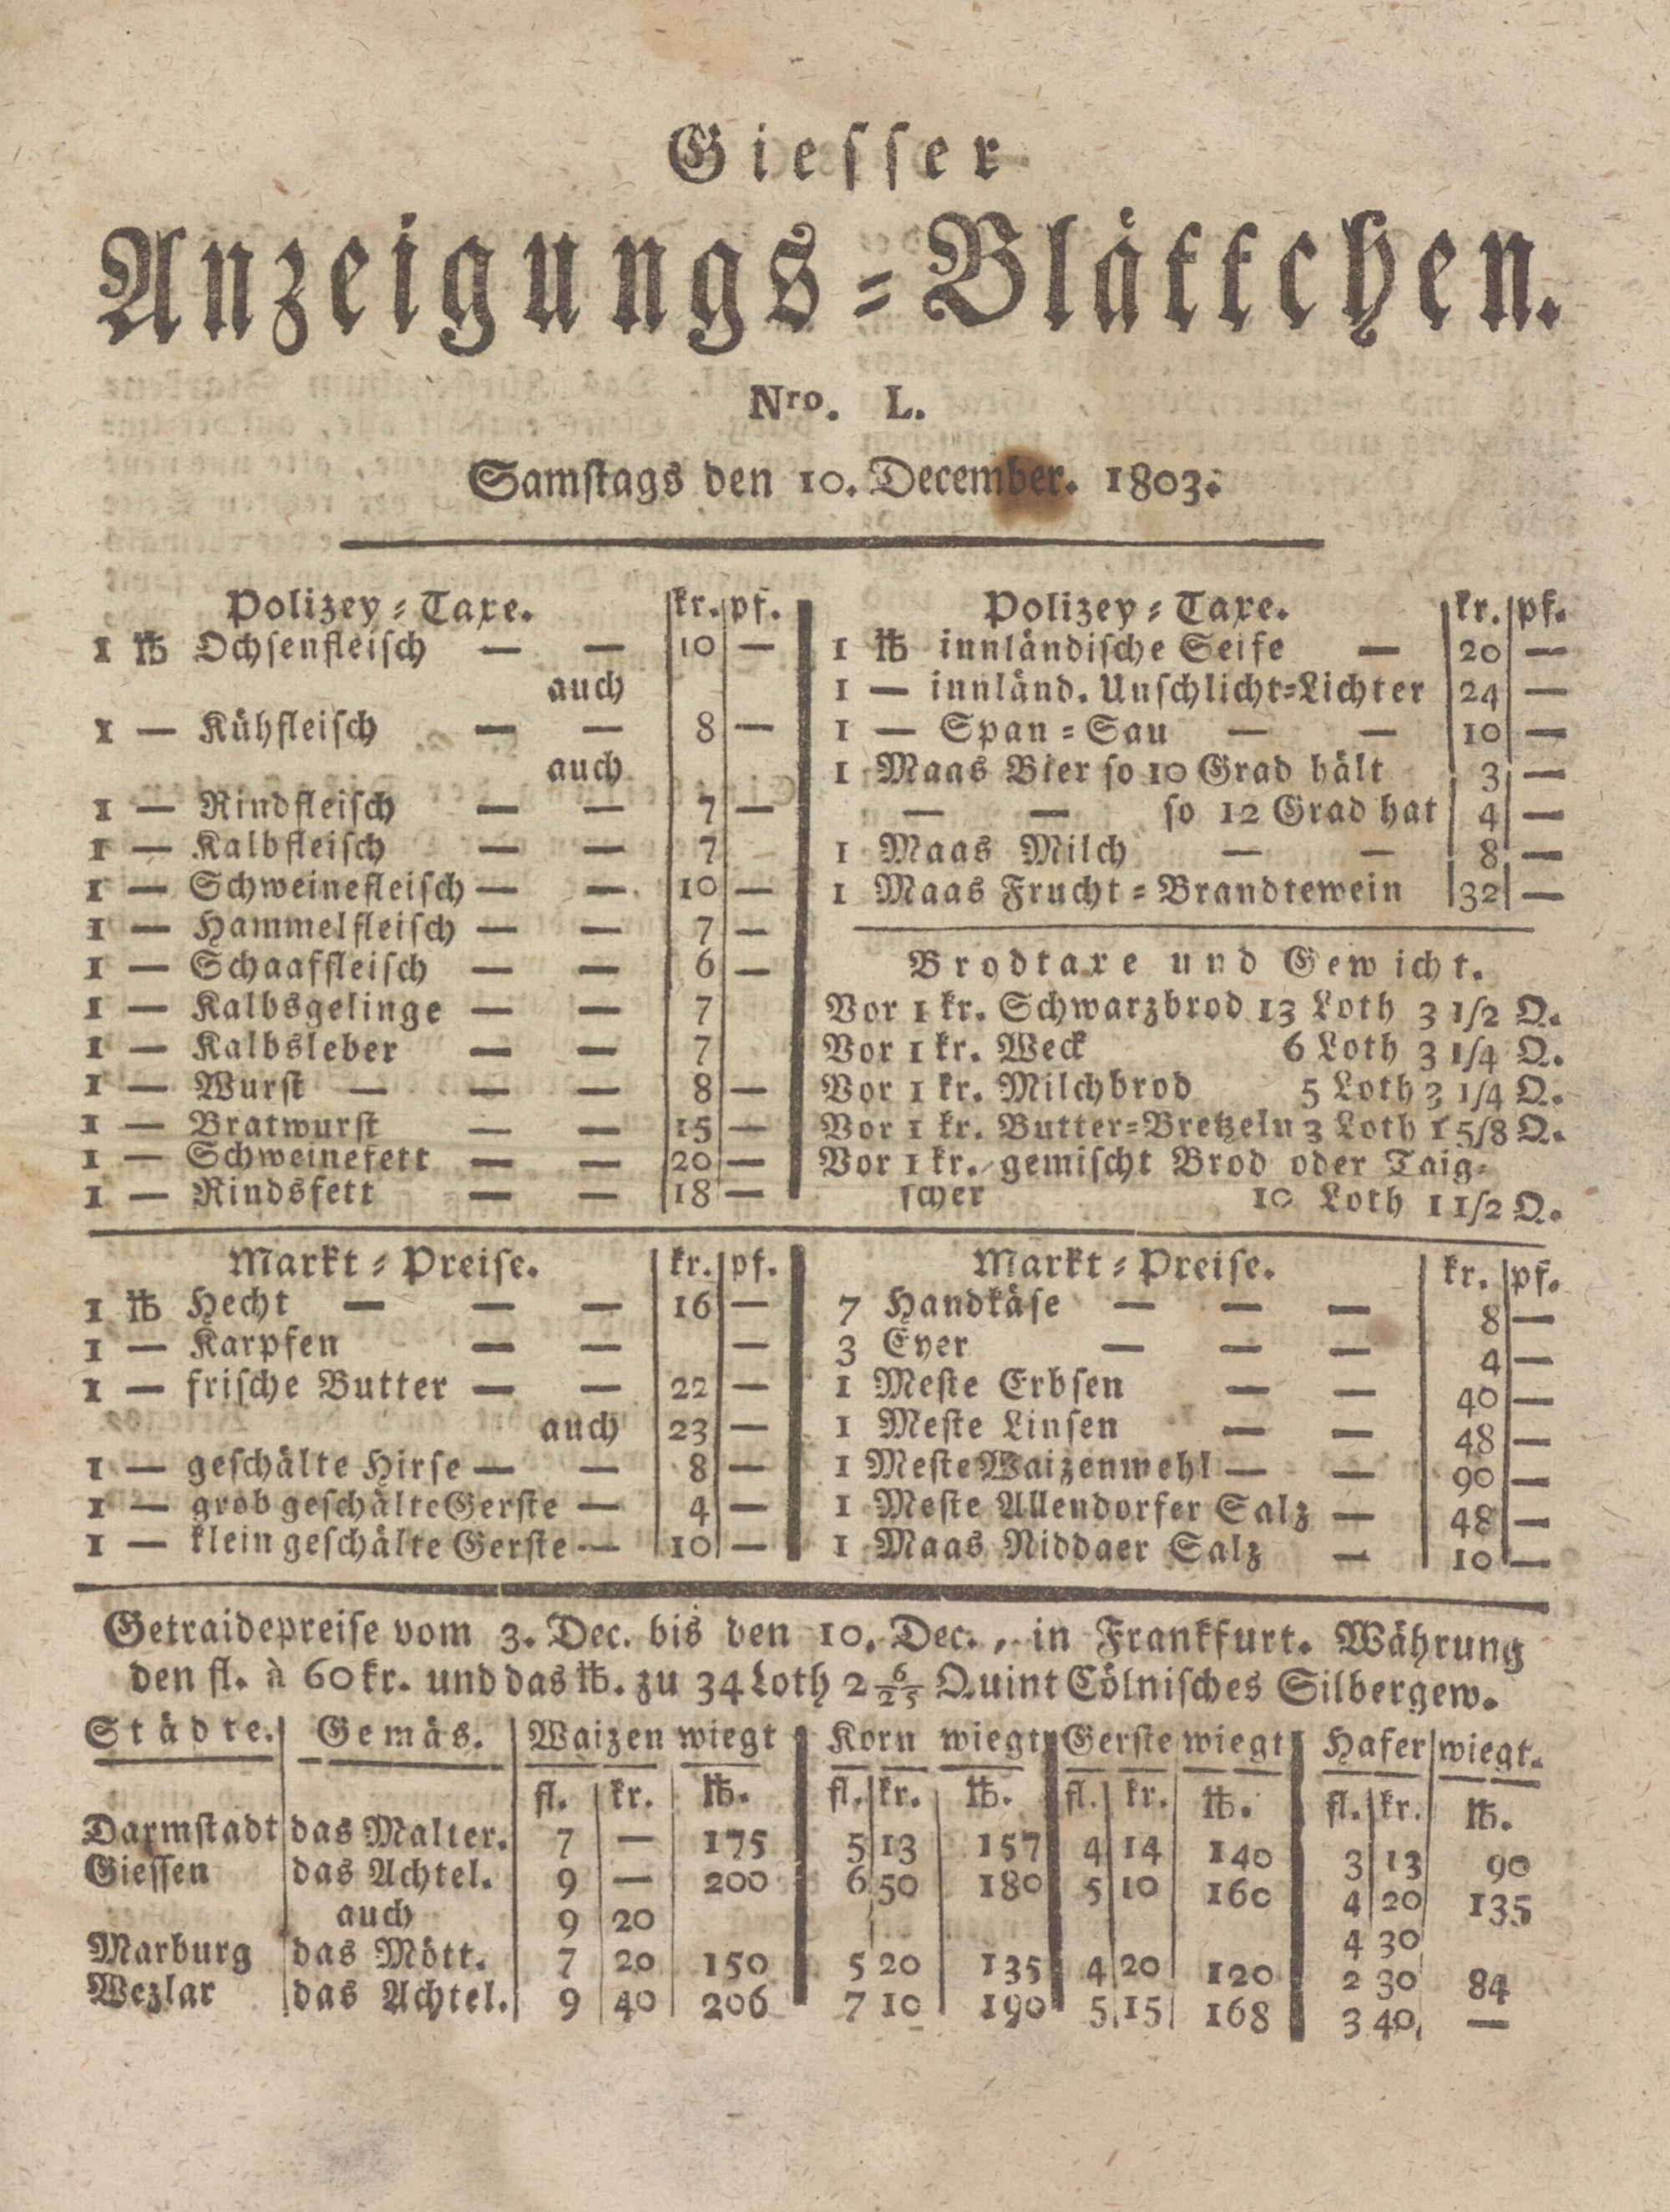 Giesser
Anzeigungs-Blättchen.
Nro. L.
Samstags den 10. December. 1803.
Polizey-Taxe. kr. pf.
1 ℔ Ochsenfleisch — — 10 —
auch
1 — Kühfleisch — — 8 —
auch
1 — Rindfleisch — — 7 —
1 — Kalbfleisch — — 7
1 — Schweinefleisch — — 10 —
1 — Hammelfleisch — — 7 —
1 — Schaaffleisch — — 6 —
1 — Kalbsgelinge — — 7
1 — Kalbsleber — — 7
1 — Wurst — — — 8 —
1 — Bratwurst — — 15 —
1 — Schweinefett — — 20 —
1 — Rindsfett — — 18 —
Polizey-Taxe. kr. pf.
1 ℔ innländische Seife — 20 —
1 — innländ. Unschlicht-Lichter 24 —
1 — Span-Sau — — 10 —
1 Maas Bier so 10 Grad hält 3 —
— — so 12 Grad hat 4 —
1 Maas Milch — — 8 —
1 Maas Frucht-Brandtewein 32 —
Brodtaxe und Gewicht.
Vor 1 kr. Schwarzbrod 13 Loth 3 1/2 Q.
Vor 1 kr. Weck 6 Loth 3 1/4 Q.
Vor 1 kr. Milchbrod 5 Loth 3 1/4 Q.
Vor 1 kr. Butter-Bretzeln 3 Loth 1 5/8 Q.
Vor 1 kr. gemischt Brod oder Taig-
scher 10 Loth 1 1/2 Q.
Markt-Preise. kr. pf.
1 ℔ Hecht — — — 16 —
1 — Karpfen — — —
1 — frische Butter — — 22 —
auch 23 —
1 — geschälte Hirse — — 8 —
1 — grob geschälte Gerste — 4 —
1 — klein geschälte Gerste — 10 —
Markt-Preise. kr. pf.
7 Handkäse — — — 8 —
3 Eyer — — — 4 —
1 Meste Erbsen — — 40 —
1 Meste Linsen — — 48 —
1 Meste Waizenmehl — — 90 —
1 Meste Allendorfer Salz — 48 —
1 Maas Niddaer Salz — 10 —
Getraidepreise vom 3. Dec. bis den 10. Dec., in Frankfurt. Währung
den fl. à 60 kr. und das ℔. zu 34 Loth 2 6/25 Quint Cölnisches Silbergew.
Städte. Gemäs. Waizen wiegt Korn wiegt Gerste wiegt Hafer wiegt.
fl. kr. ℔. fl. kr. ℔. fl. kr. ℔. fl. kr. ℔.
Darmstadt das Malter. 7 — 175 5 13 157 4 14 140 3 13 90
Giessen das Achtel. 9 — 200 6 50 180 5 10 160 4 20 135
auch 9 20 4 30
Marburg das Mött. 7 20 150 5 20 135 4 20 120 2 30 84
Wezlar das Achtel. 9 40 206 7 10 190 5 15 168 3 40 —